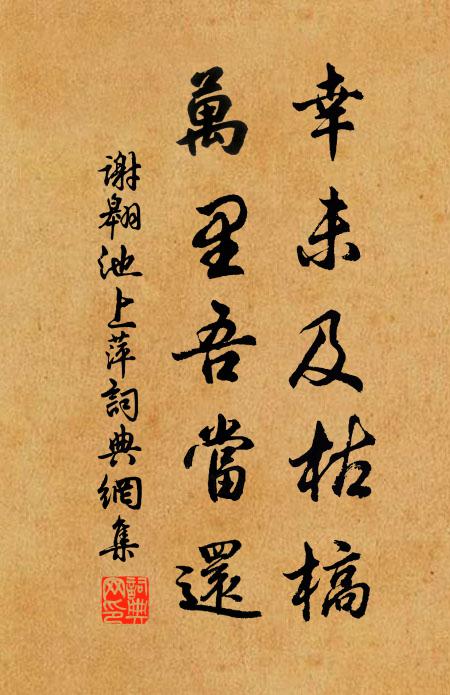 幸未及枯槁
萬里吾當還
謝翱池上萍詞典網集
詞典网印